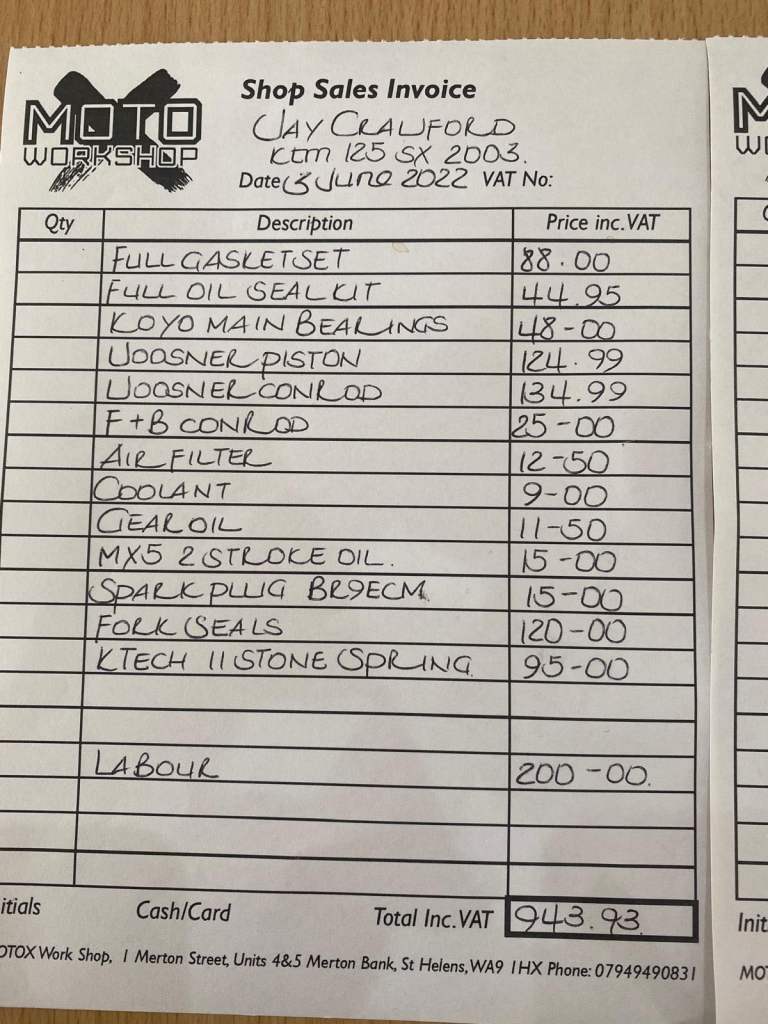 MOTO
WORKSHOP
Shop Sales Invoice
JAY CRAWFORD
KTM 125 SX 2003.
Date 3 June 2022 VAT No:
Qty Description Price inc.VAT
FULL GASKET SET 88.00
FULL OIL SEAL KIT 44.95
KOYO MAIN BEARINGS 48-00
WOOSNER PISTON 124.99
WOOSNER CONROD 134.99
F+B CONROD 25-00
AIR FILTER 12-50
COOLANT 9-00
GEAR OIL 11-50
MX5 2 STROKE OIL. 15-00
SPARK PLUG BR9ECM 15-00
FORK SEALS 120-00
KTECH 11 STONE SPRING 95-00
LABOUR 200-00.
itials Cash/Card Total Inc.VAT 943.93
OTOX Work Shop, 1 Merton Street, Units 4&5 Merton Bank, St Helens, WA9 1HX Phone: 07949490831
Init
MO